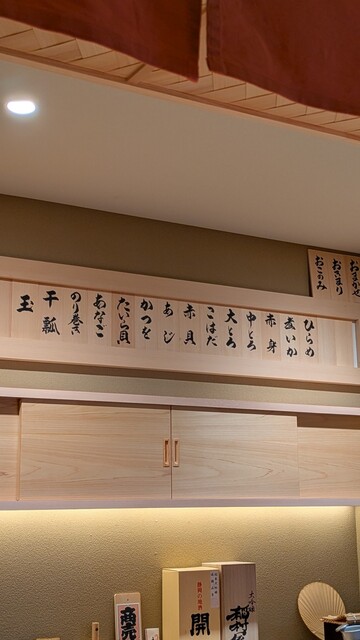 おまかせ
おきまり
おこのみ
ひらめ
麦いか
赤身
中とろ
大とろ
こはだ
赤貝
あじ
かつを
たいら貝
あなご
のり巻き
干瓢
玉
大吟醸
開
商売